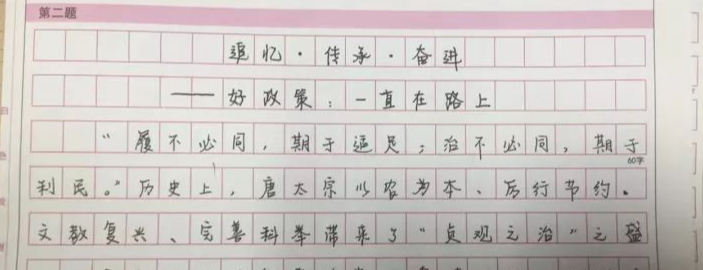 第二题
追忆·传承·奋进
——好政策：一直在路上
“履不必同，期于适足；治不必同，期于
60字
利民。”历史上，唐太宗以农为本、厉行节约。
文教复兴、完善科举带来了“贞观之治”之盛